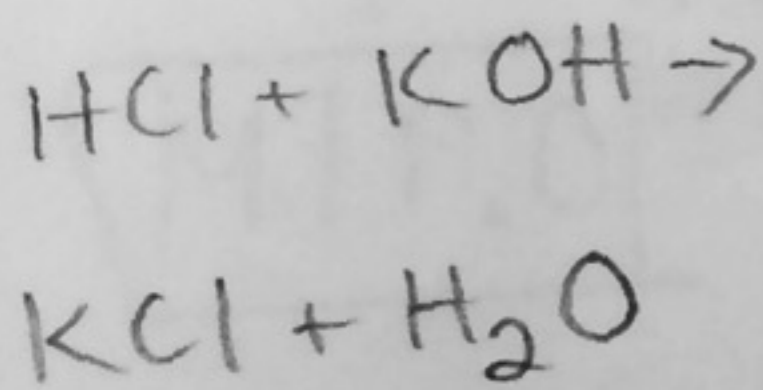 HCl + KOH →
KCl + H₂O